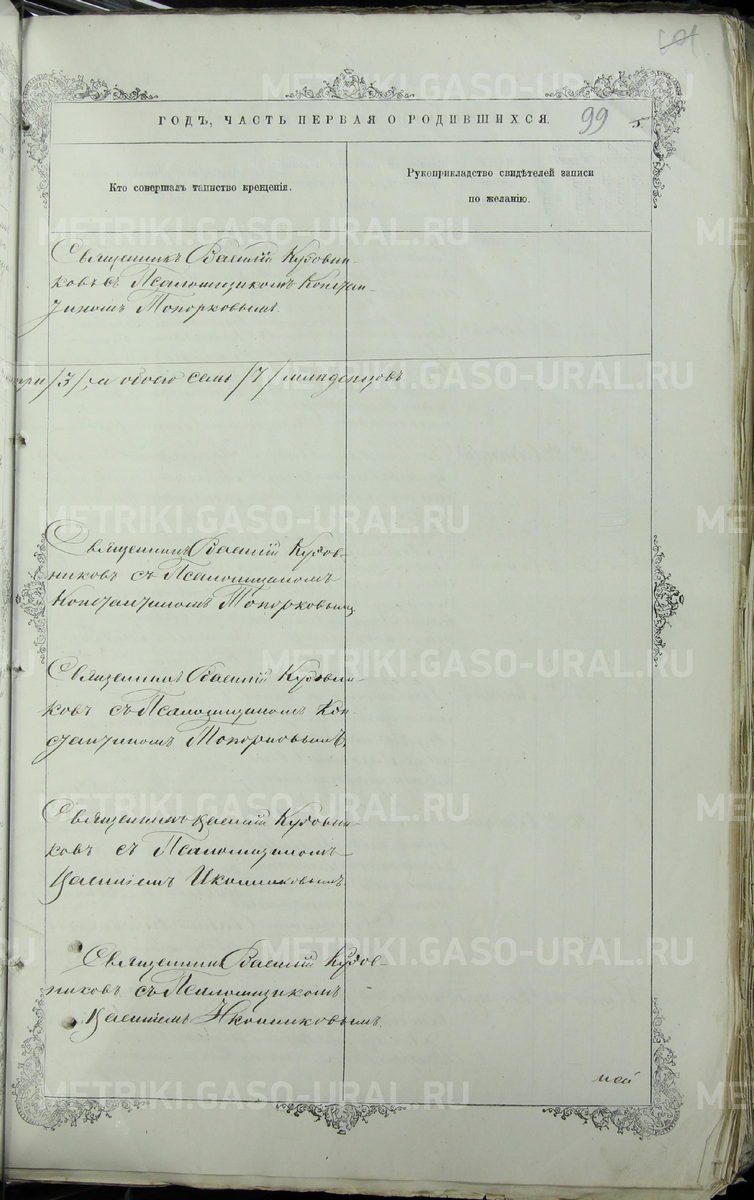 101
ГОДЪ, ЧАСТЬ ПЕРВАЯ О РОДИВШИХСЯ.
99
5
Кто совершалъ таинство крещенія.
Рукоприкладство свидѣтелей записи
по желанію.
Священникъ Василій Кузовни-
ковъ съ Псаломщикомъ Констан-
тиномъ Топорковымъ.
три /3/, а обоего семь /7/ младенцовъ
Священникъ Василій Кузов-
никовъ съ Псаломщикомъ
Константиномъ Топорковымъ
Священникъ Василій Кузовни-
ковъ съ Псаломщикомъ Кон-
стантиномъ Топорковымъ.
Священникъ Василій Кузовни-
ковъ съ Псаломщикомъ
Василіемъ Иконниковымъ.
Священникъ Василій Кузов-
никовъ съ Псаломщикомъ
Василіемъ Иконниковымъ.
METRIKI.GASO-URAL.RU